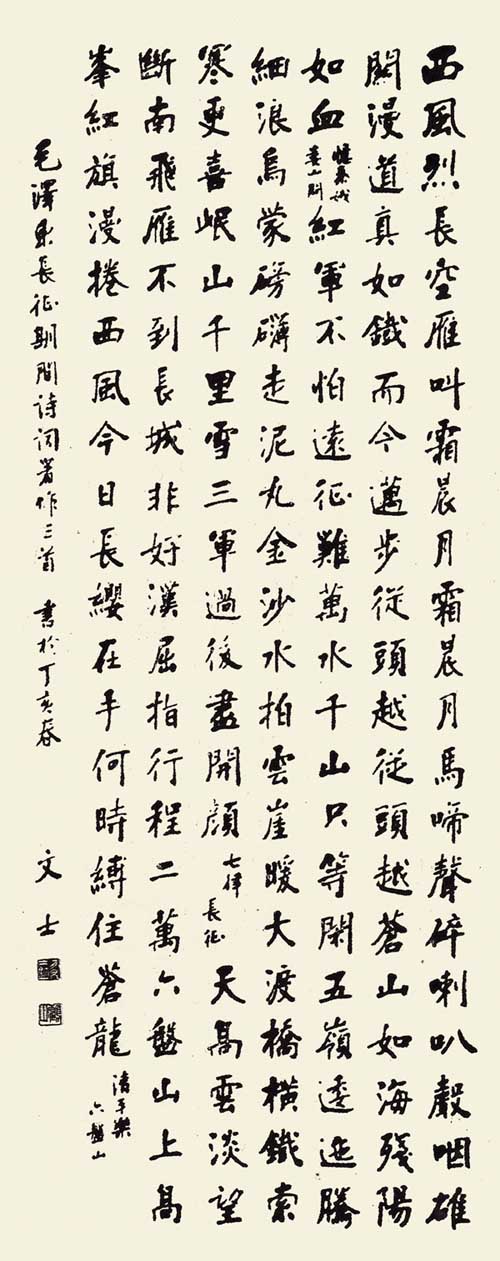 西風烈長空雁叫霜晨月霜晨月馬啼聲碎喇叭聲咽雄
關漫道真如鐵而今邁步從頭越從頭越蒼山如海殘陽
如血憶秦娥婁山關紅軍不怕遠征難萬水千山只等閑五嶺逶迤騰
細浪烏蒙磅礴走泥丸金沙水拍雲崖暖大渡橋橫鐵索
寒更喜岷山千里雪三軍過後盡開顏七律長征天高雲淡望
斷南飛雁不到長城非好漢屈指行程二萬六盤山上高
峯紅旗漫捲西風今日長纓在手何時縛住蒼龍清平樂六盤山
毛澤東長征期間詩詞著作三首 書於丁亥春 文士